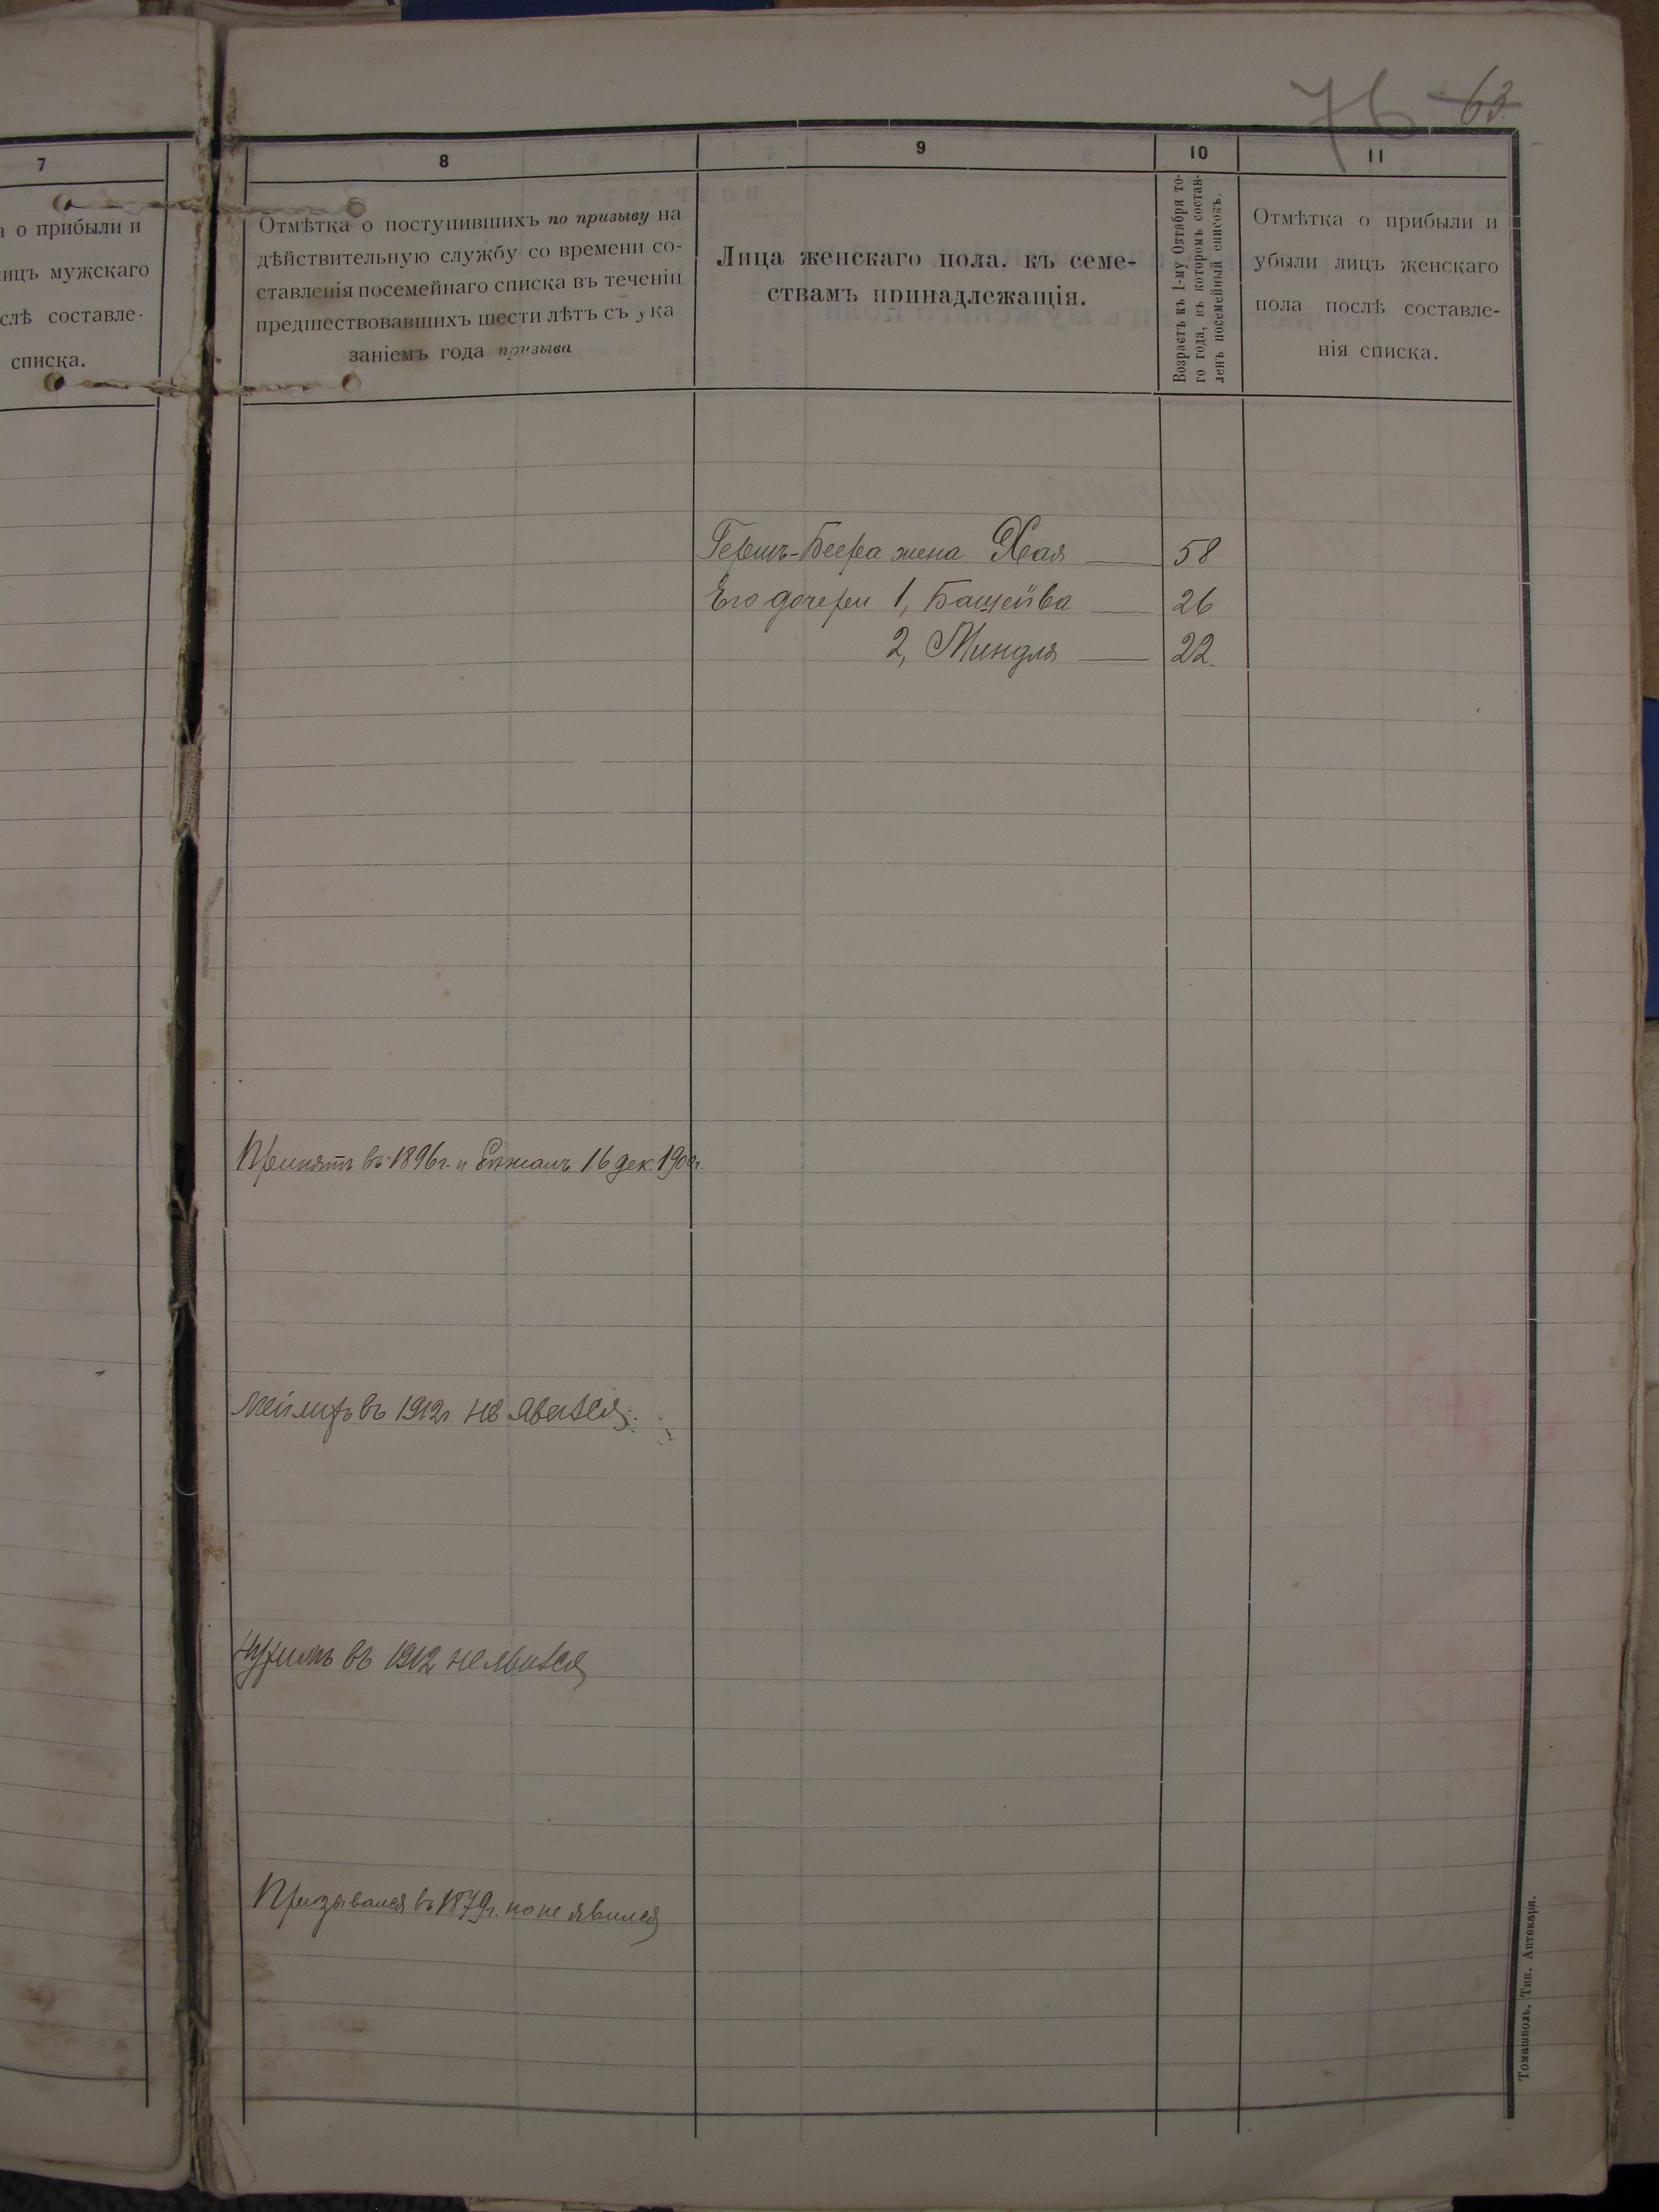 76 63.
7
а о прибыли и
лицъ мужскаго
слѣ составле-
списка.
8
Отмѣтка о поступившихъ по призыву на
дѣйствительную службу со времени со-
ставленія посемейнаго списка въ теченіи
предшествовавшихъ шести лѣтъ съ ука
заніемъ года призыва
9
Лица женскаго пола, къ семе-
ствамъ принадлежащія.
10
Возрастъ къ 1-му Октября то-
го года, въ которомъ состав-
ленъ посемейный списокъ.
11
Отмѣтка о прибыли и
убыли лицъ женскаго
пола послѣ составле-
нія списка.
Гершъ-Беера жена Хая — 58
Его дочери 1, Башейва — 26
2, Миндля — 22.
Принятъ въ 1896г. и 16 дек. 1900г.
въ 1912г. не явился.
въ 1912 не явился
Призывался въ 1879г. но не явился
Томашполь. Тип. Аптекаря.